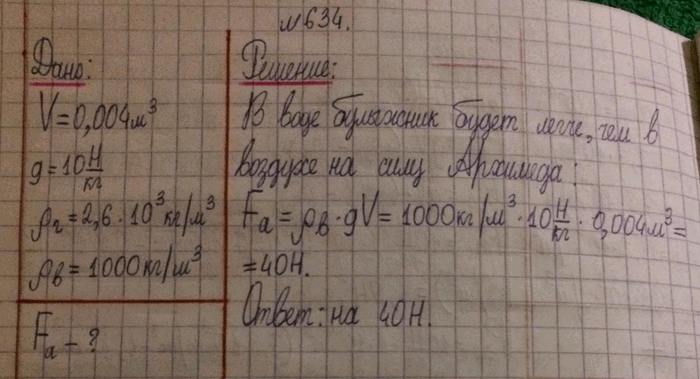 №634.
Дано:
V=0,004м³
g=10 Н/кг
ρг=2,6·10³кг/м³
ρв=1000кг/м³
Fа-?
Решение:
В воде булыжник будет легче, чем в
воздухе на силу Архимеда:
Fа=ρв·gV=1000кг/м³·10 Н/кг·0,004м³=
=40Н.
Ответ: на 40Н.